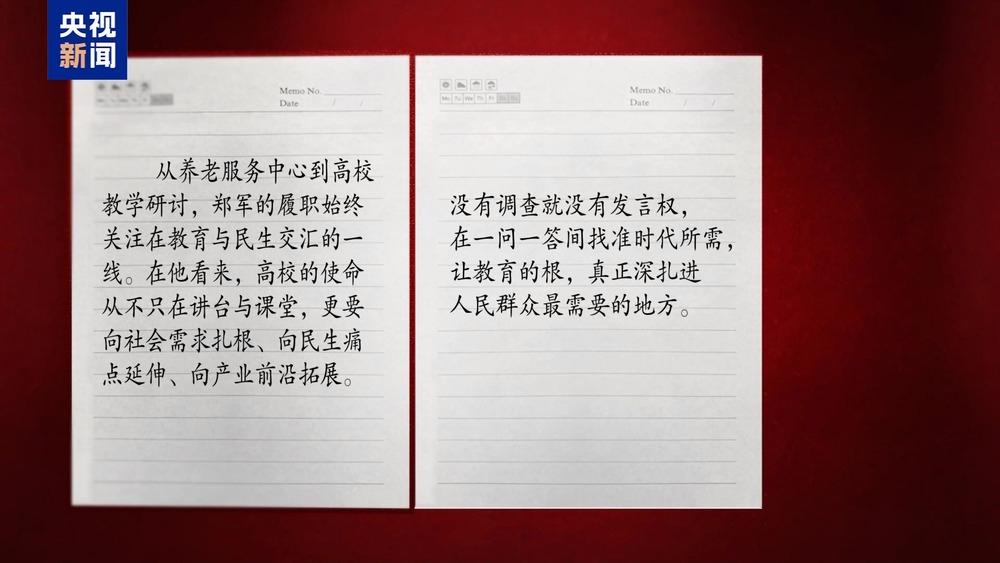 央视
新闻
Memo No.
Date / /
从养老服务中心到高校
教学研讨，郑军的履职始终
关注在教育与民生交汇的一
线。在他看来，高校的使命
从不只在讲台与课堂，更要
向社会需求扎根、向民生痛
点延伸、向产业前沿拓展。
Mo Tu We Th Fr Sa Su
Memo No.
Date / /
没有调查就没有发言权，
在一问一答间找准时代所需，
让教育的根，真正深扎进
人民群众最需要的地方。